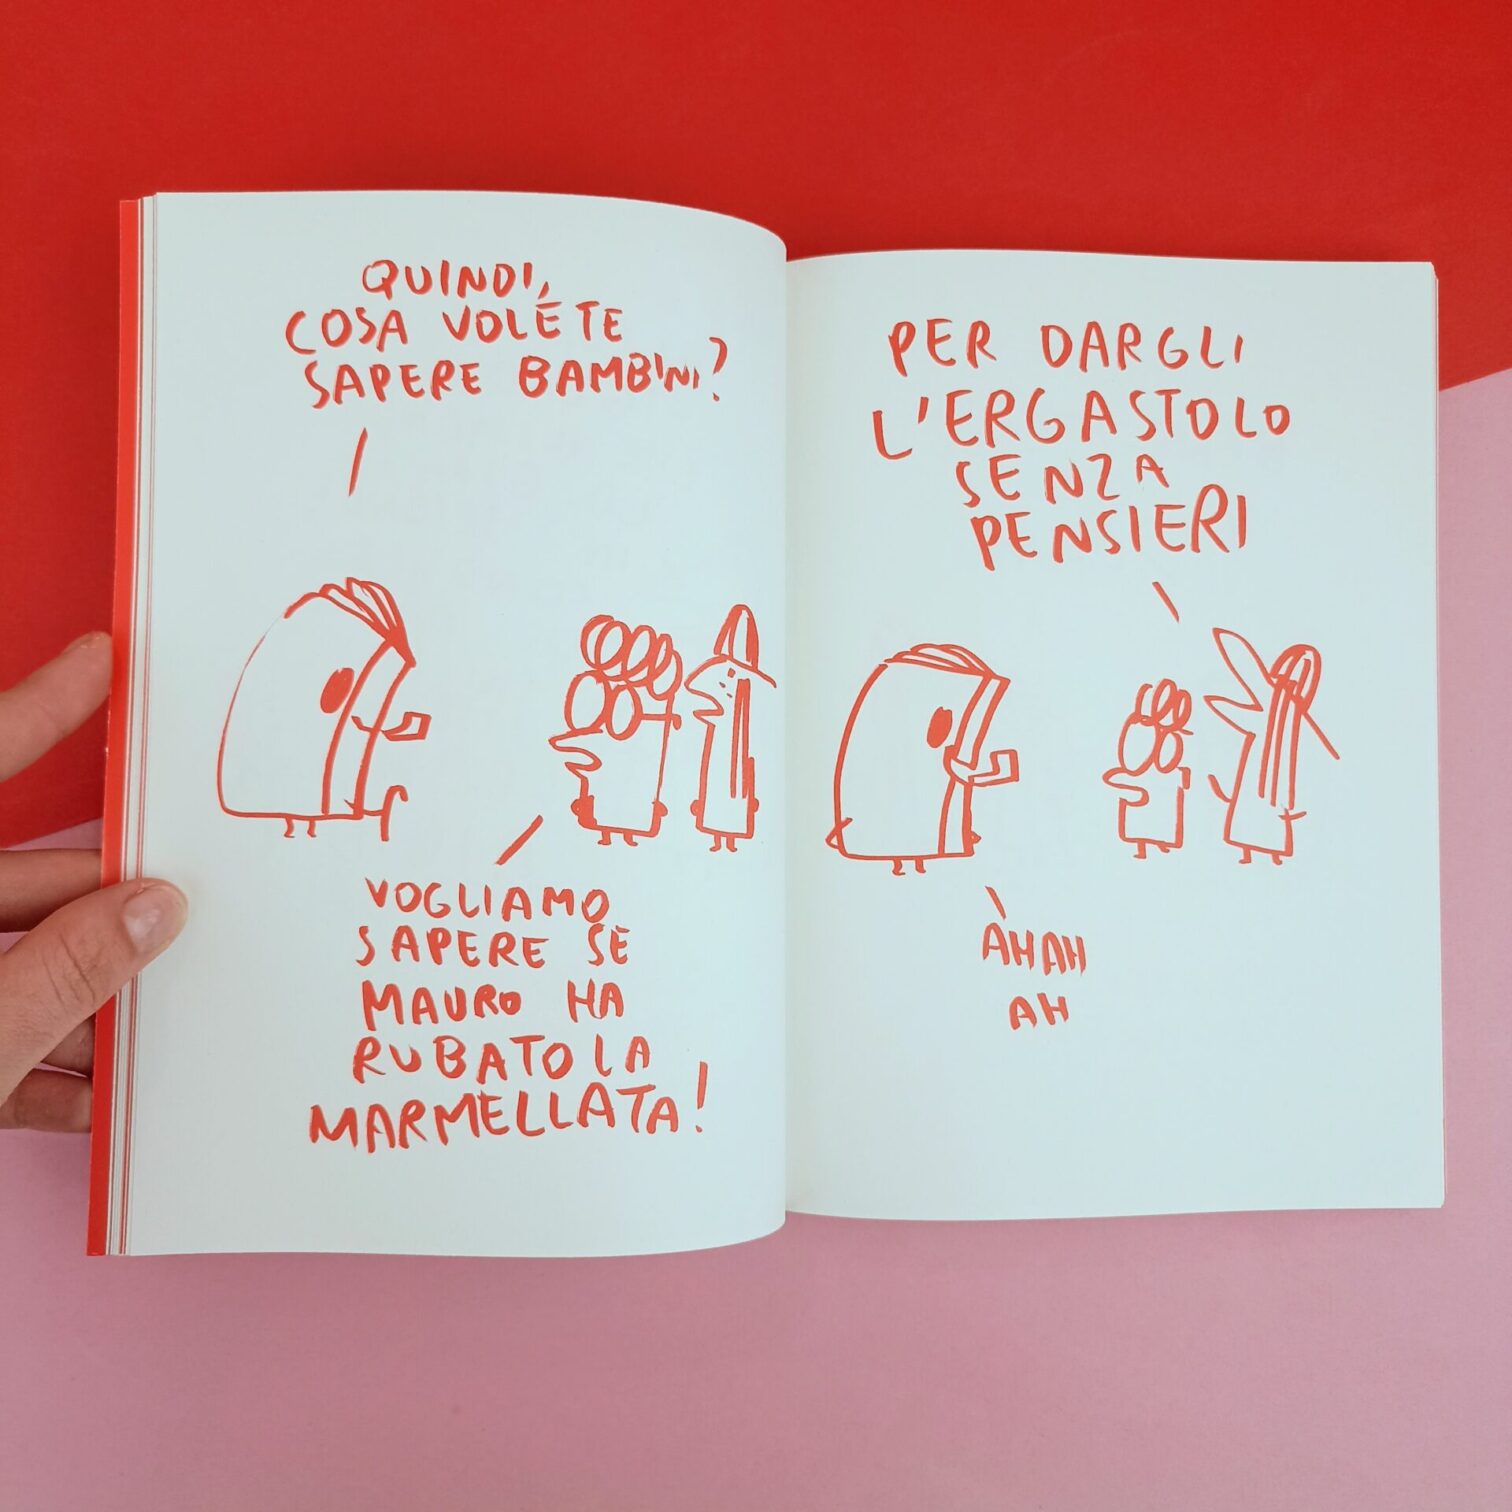 QUINDI,
COSA VOLETE
SAPERE BAMBINI?
VOGLIAMO
SAPERE SE
MAURO HA
RUBATO LA
MARMELLATA!
PER DARGLI
L'ERGASTOLO
SENZA
PENSIERI
ÀHAH
AH